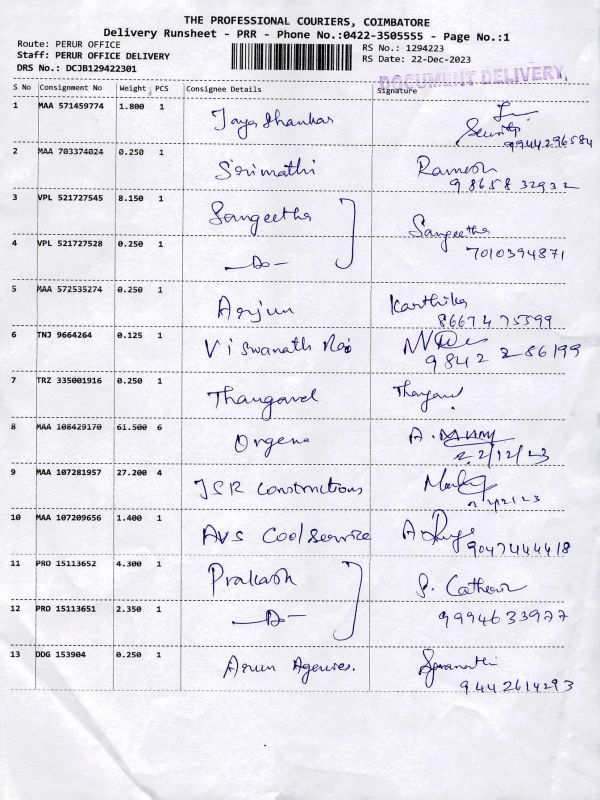 THE PROFESSIONAL COURIERS, COIMBATORE
Delivery Runsheet - PRR - Phone No.:0422-3505555 - Page No.:1
Route: PERUR OFFICE RS No.: 1294223
Staff: PERUR OFFICE DELIVERY RS Date: 22-Dec-2023
DRS No.: DCJB129422301 DOCUMENT DELIVERY
S No Consignment No Weight PCS Consignee Details Signature
1 MAA 571459774 1.800 1 Jayashankar
Security
9944296584
2 MAA 703374024 0.250 1 Srimathi Ramesh
98658 32932
3 VPL 521727545 8.150 1 Sangeetha Sangeetha
4 VPL 521727528 0.250 1 -Do- 7010394871
5 MAA 572535274 0.250 1 Arjun Karthika
86674 75599
6 TNJ 9664264 0.125 1 Viswanath Rao
9842 286199
7 TRZ 335001916 0.250 1 Thangavel Thangavel
8 MAA 108429170 61.500 6 Orgena A.
22/12/23
9 MAA 107281957 27.200 4 JSR Constructions
10 MAA 107209656 1.400 1 AVS Cool Service
9047444418
11 PRO 15113652 4.300 1 Prakash P.
12 PRO 15113651 2.350 1 -Do- 9994633977
13 DDG 153904 0.250 1 Arun Agencies.
9442614293